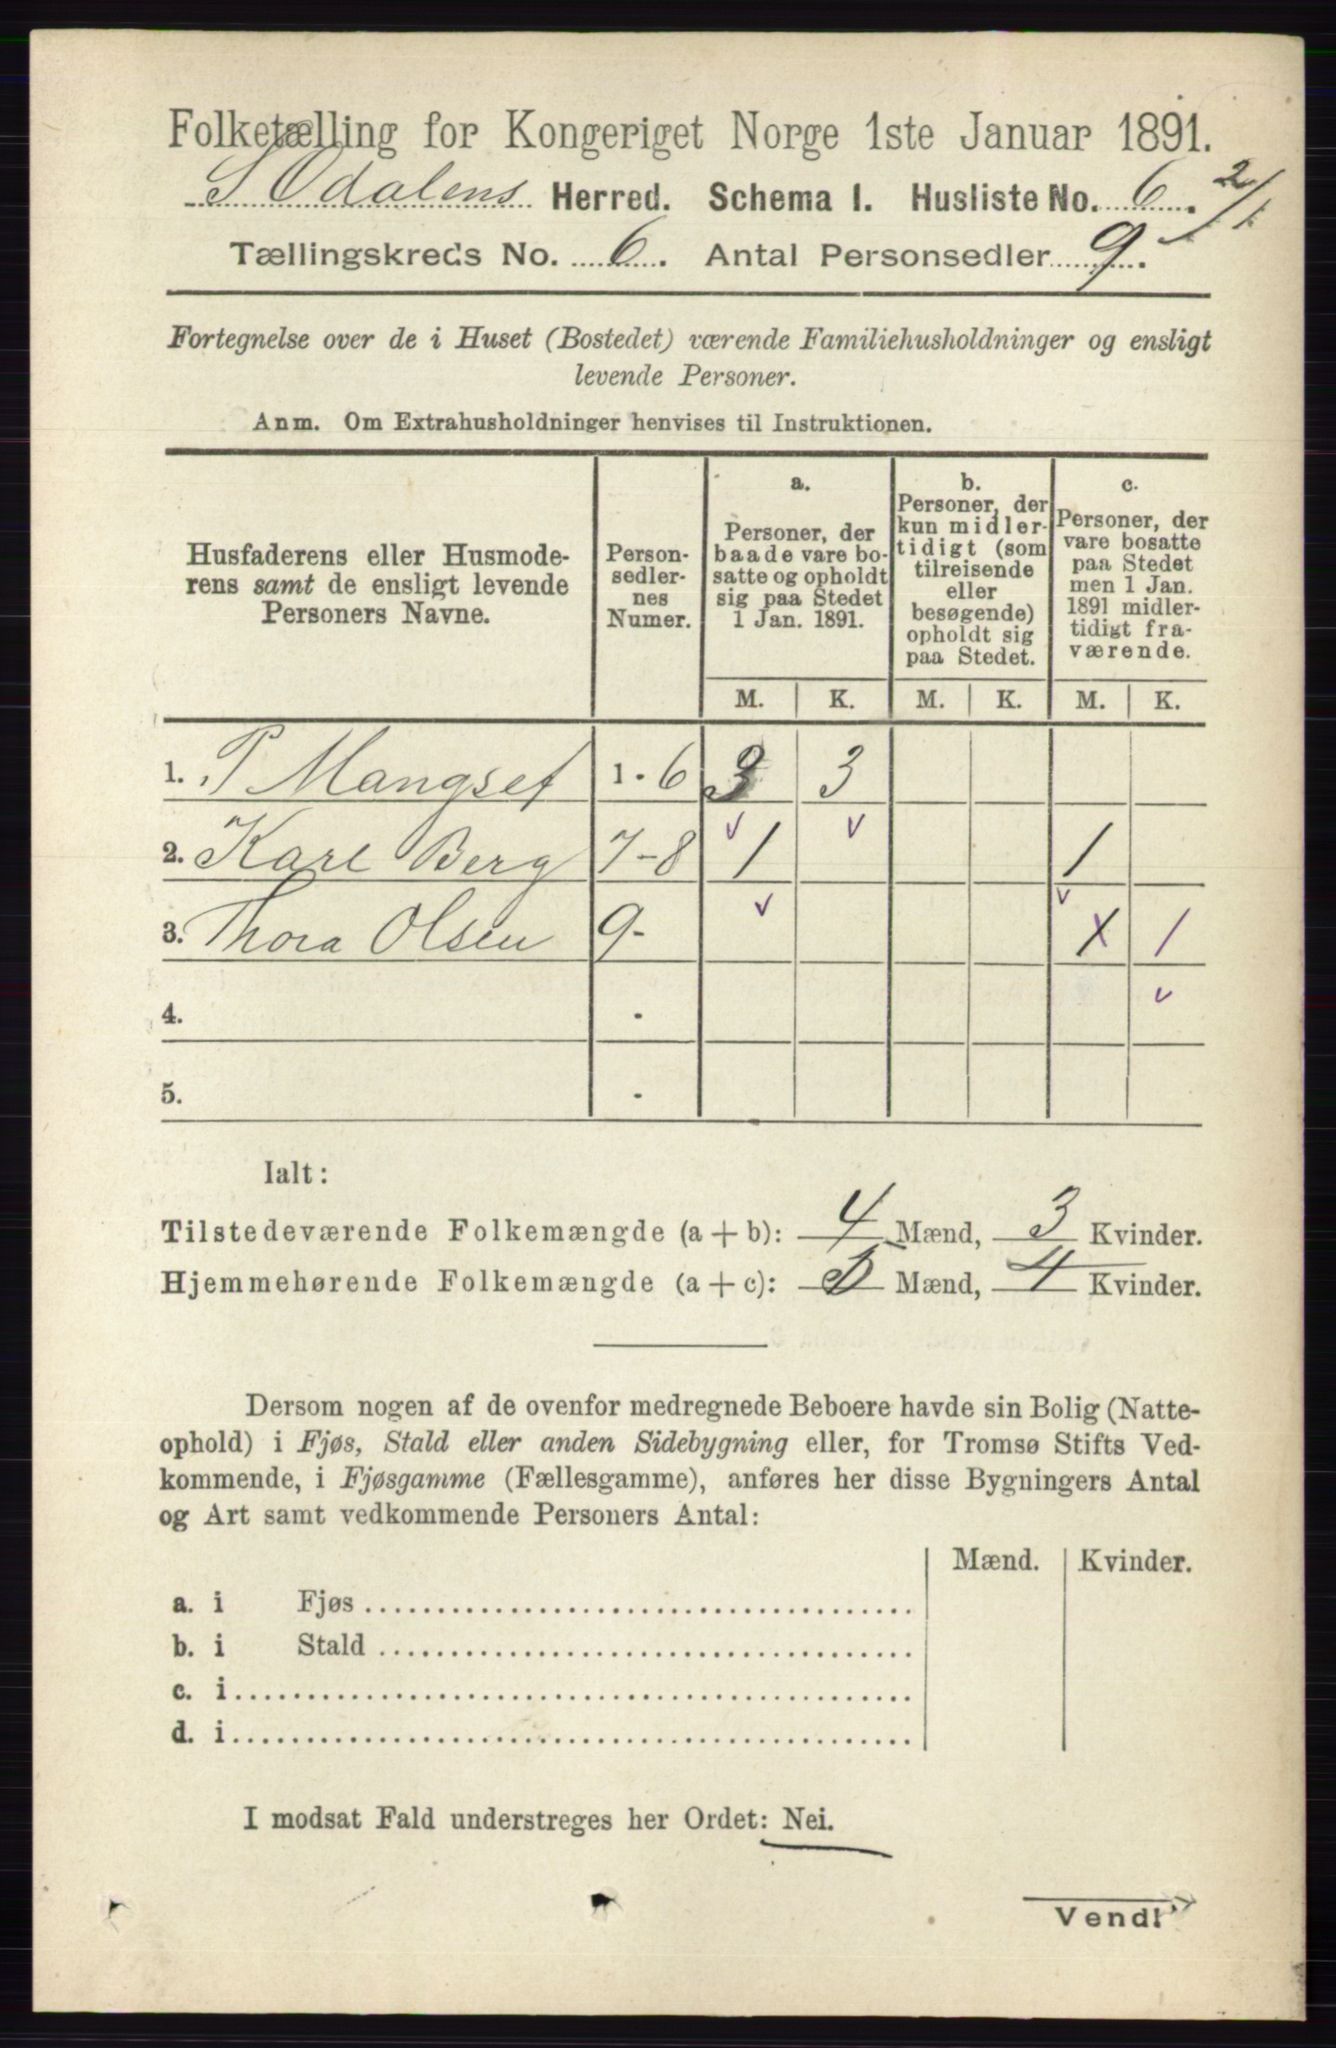 Folketælling for Kongeriget Norge 1ste Januar 1891.
S Odalens Herred. Schema I. Husliste No. 6. 2/1
Tællingskreds No. 6. Antal Personsedler 9.
Fortegnelse over de i Huset (Bostedet) værende Familiehusholdninger og ensligt
levende Personer.
Anm. Om Extrahusholdninger henvises til Instruktionen.
Husfaderens eller Husmode-
rens samt de ensligt levende
Personers Navne.
Person-
sedler-
nes
Numer.
a.
Personer, der
baade vare bo-
satte og opholdt
sig paa Stedet
1 Jan. 1891.
b.
Personer, der
kun midler-
tidigt (som
tilreisende
eller
besøgende)
opholdt sig
paa Stedet.
c.
Personer, der
vare bosatte
paa Stedet
men 1 Jan.
1891 midler-
tidigt fra-
værende.
M. K. M. K. M. K.
1. P Mangset 1 - 6 3 3
2. Karl Berg 7-8 1 1
3. Thora Olsen 9- 1
4. -
5. -
Ialt:
Tilstedeværende Folkemængde (a + b): 4 Mænd, 3 Kvinder.
Hjemmehørende Folkemængde (a + c): 5 Mænd, 4 Kvinder.
Dersom nogen af de ovenfor medregnede Beboere havde sin Bolig (Natte-
ophold) i Fjøs, Stald eller anden Sidebygning eller, for Tromsø Stifts Ved-
kommende, i Fjøsgamme (Fællesgamme), anføres her disse Bygningers Antal
og Art samt vedkommende Personers Antal:
Mænd. Kvinder.
a. i Fjøs
b. i Stald
c. i
d. i
I modsat Fald understreges her Ordet: Nei.
Vend!